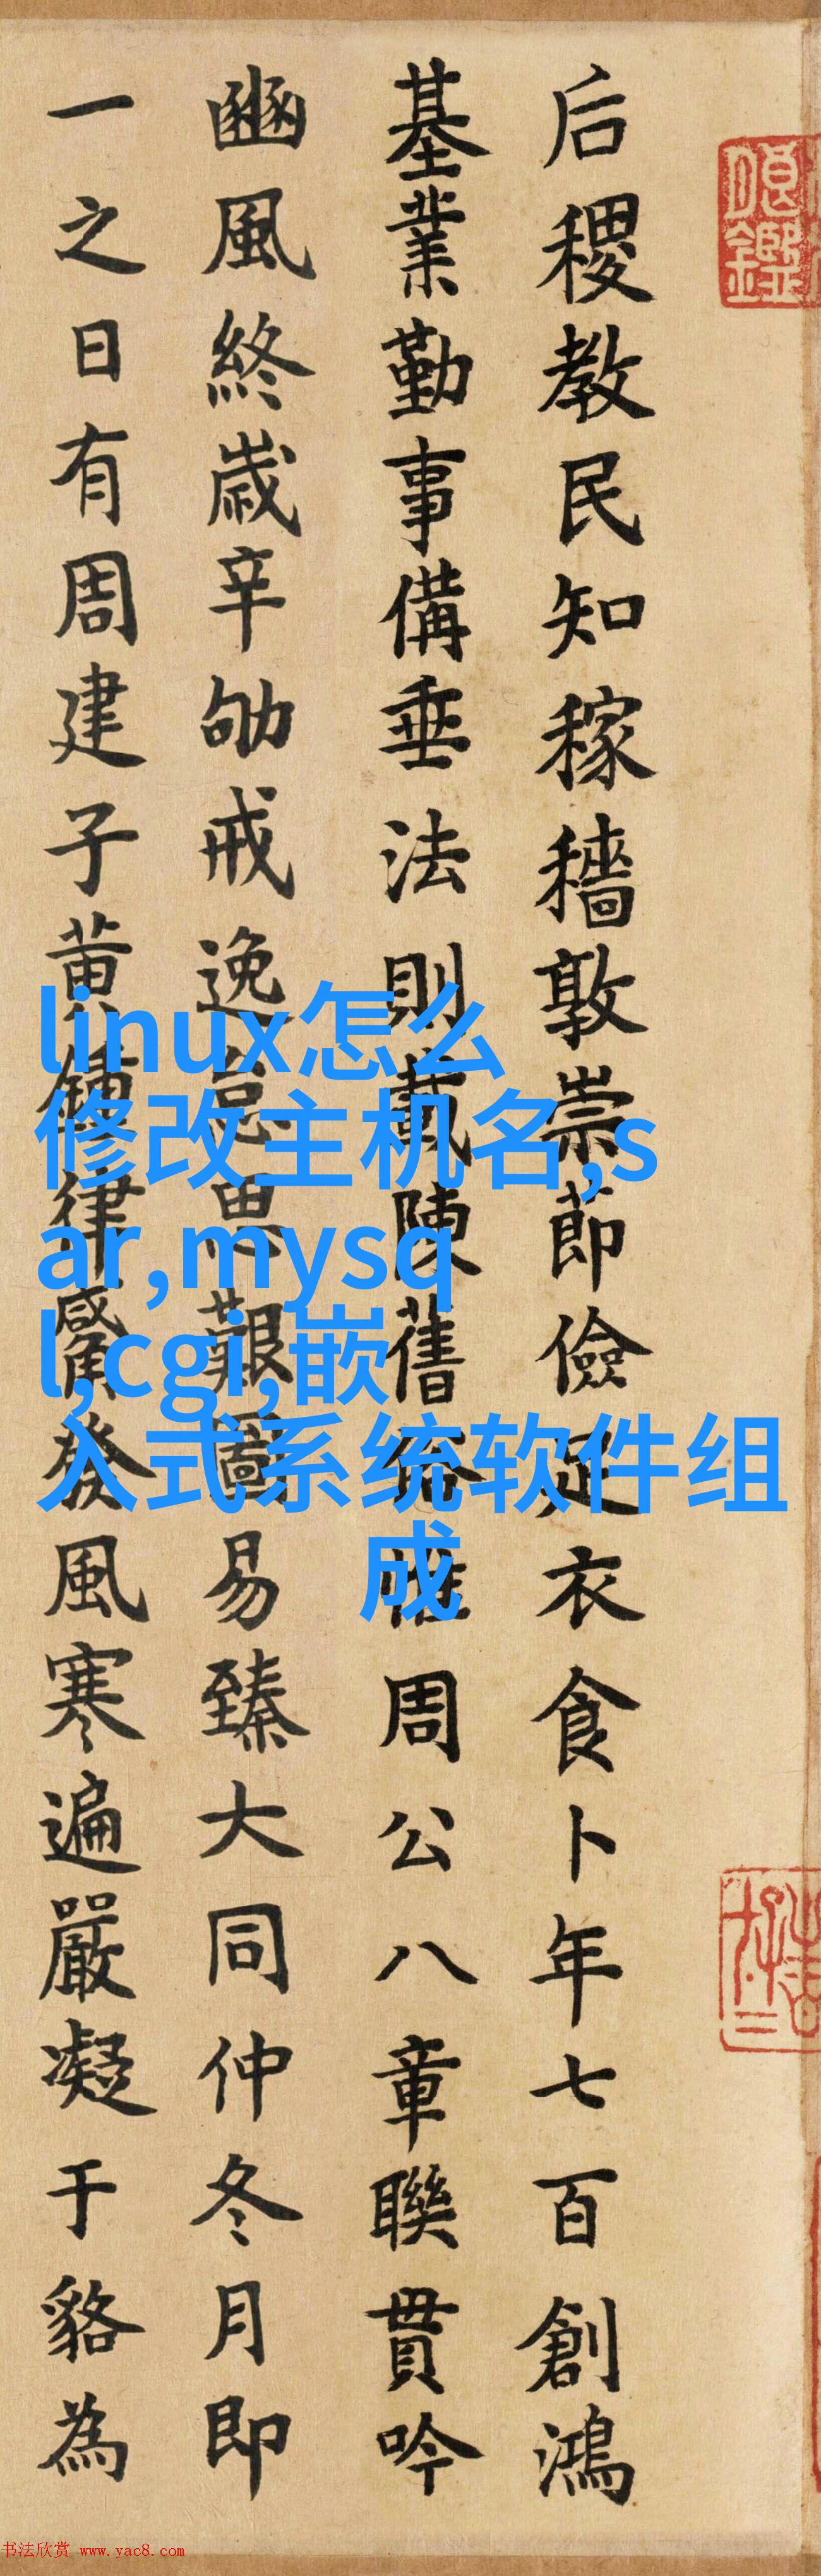 后稷教民知稼穡敦崇節儉足衣食卜年七百創鴻
基業勤事備垂法則載陳舊俗惟周公八章聯貫吟
豳風終歲辛劬戒逸怠思艱圖易臻大同仲冬月即
一之日有周建子黃鍾律觱發風寒遍嚴凝于貉為
linux怎么
修改主机名,s
ar,mysq
l,cgi,嵌
入式系统软件组
成
书法欣赏 www.yac8.com